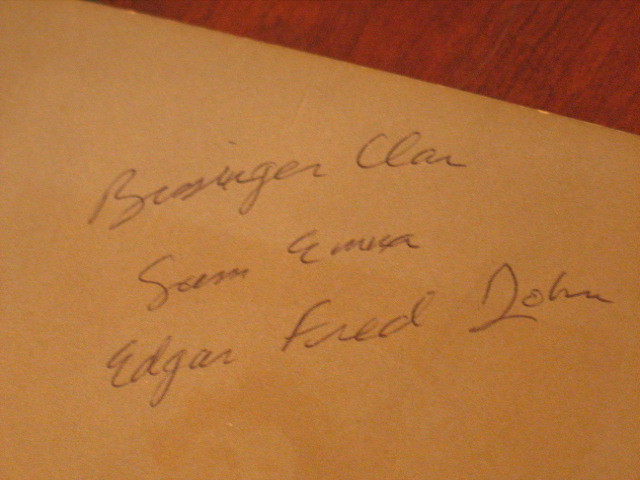 Bissinger Clan
Sam Emma
Edgar Fred John